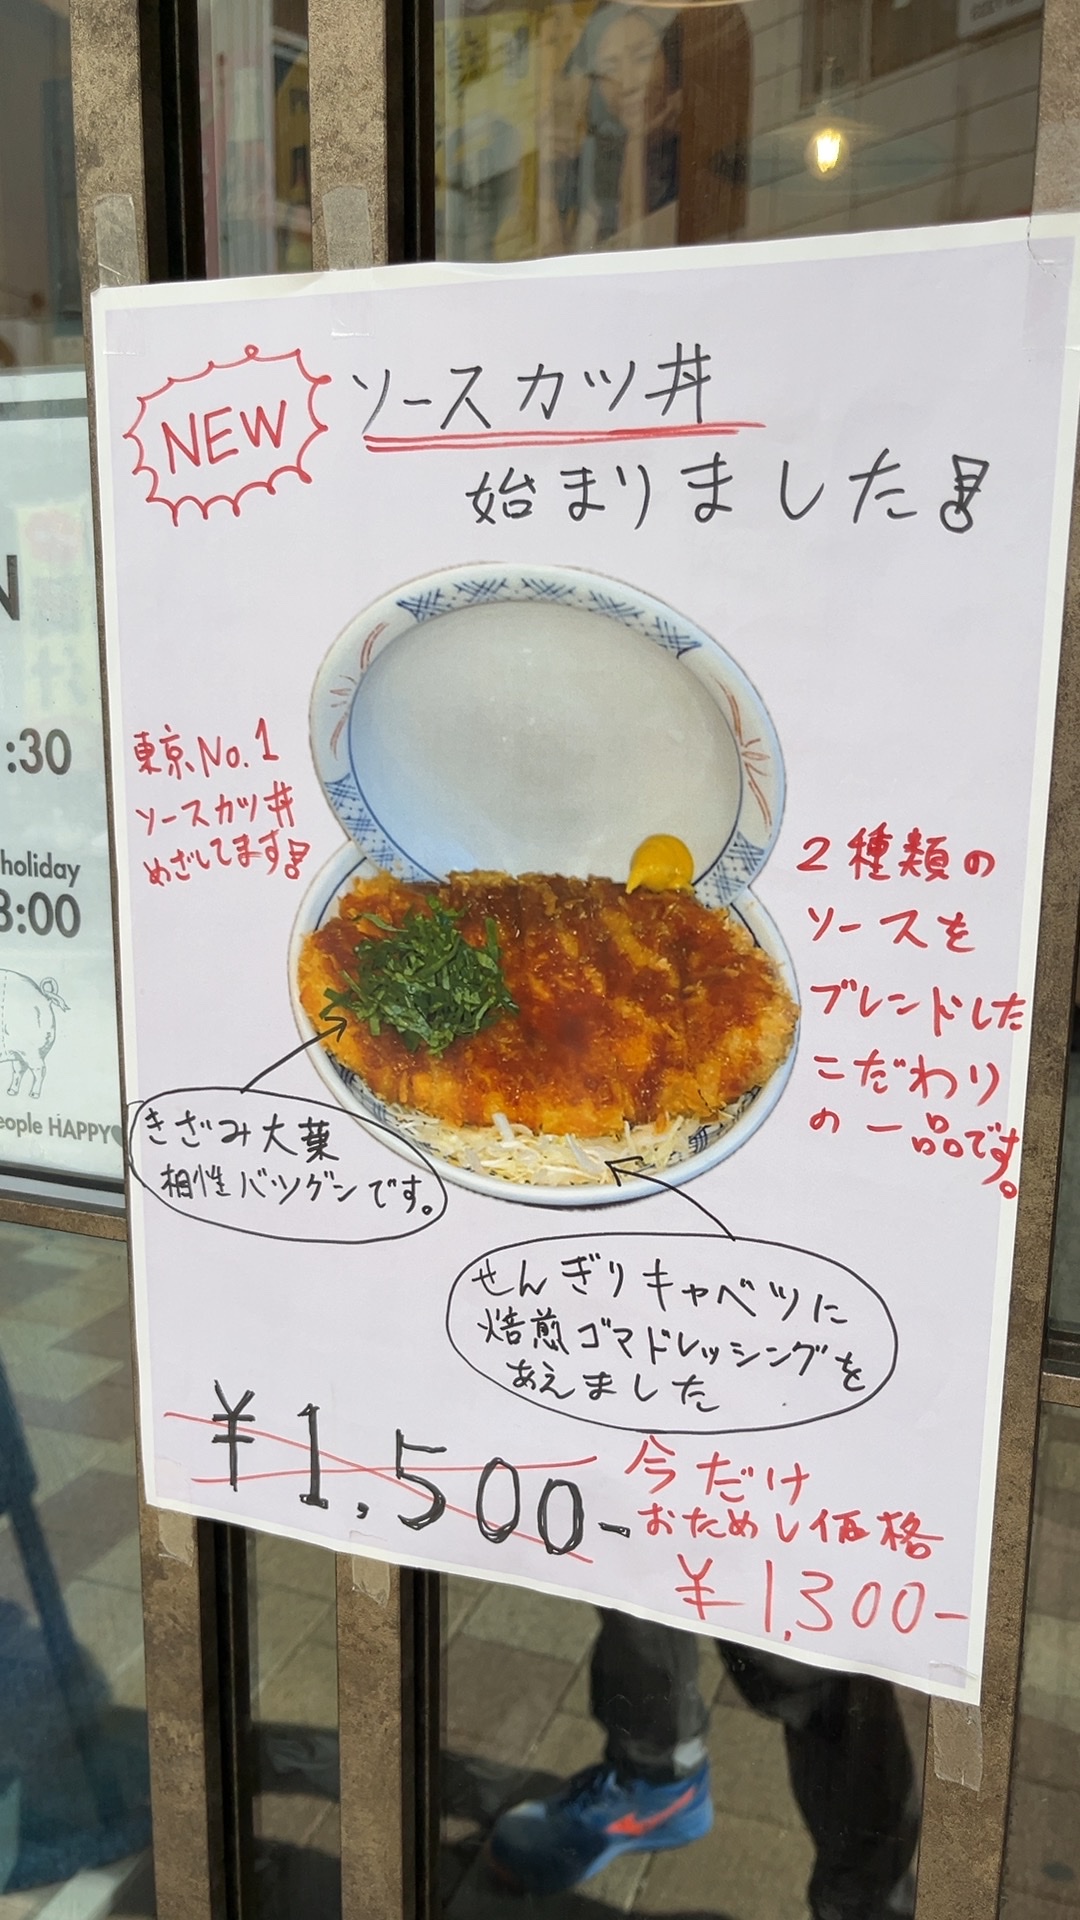 NEW
ソースカツ丼
始まりました!
東京No.1
ソースカツ丼
めざしてます!
2種類の
ソースを
ブレンドした
こだわり
の一品です。
きざみ大葉
相性バツグンです。
せんぎりキャベツに
焙煎ゴマドレッシングを
あえました
¥1,500-
今だけ
おためし価格
¥1,300-
N
:30
holiday
:00
eople HAPPY